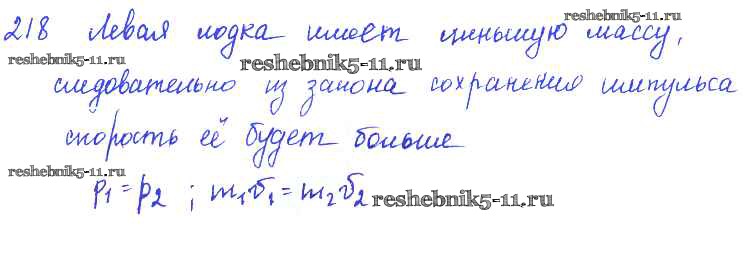 reshebnik5-11.ru
218 Левая лодка имеет меньшую массу,
reshebnik5-11.ru
reshebnik5-11.ru
следовательно из закона сохранения импульса
скорость её будет больше
reshebnik5-11.ru
p₁=p₂ ; m₁v₁=m₂v₂
reshebnik5-11.ru